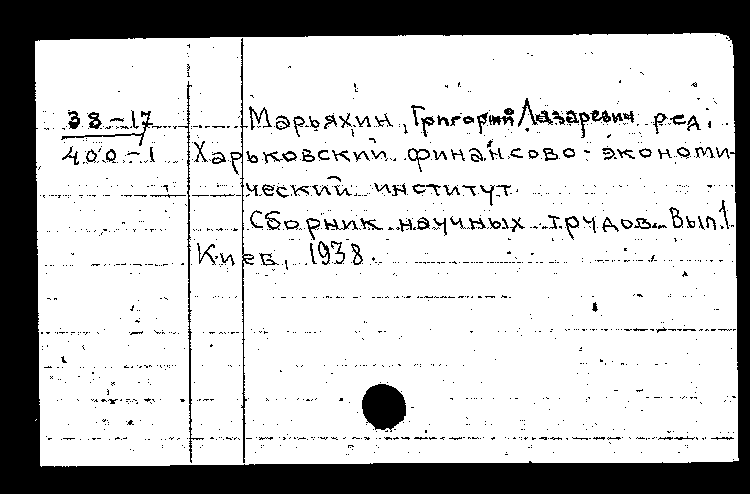 38-17
400-1
Марьяхин, Григорий Лазаревич ред.
Харьковский финансово-экономи-
ческий институт.
Сборник научных трудов. Вып.1
Киев, 1938.